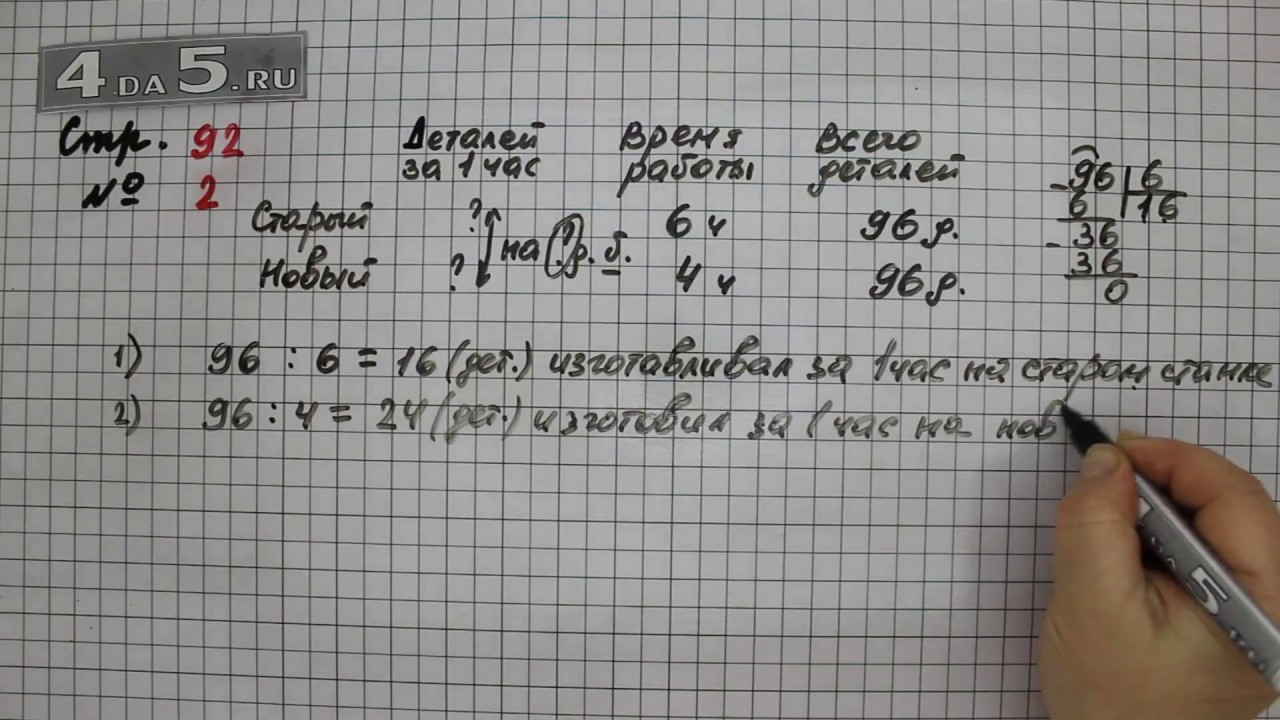 4.DA5.RU
Стр. 92
№ 2
Деталей за 1 час
Время работы
Всего деталей
Старый ? 6 ч 96 д.
на ? д. б.
Новый ? 4 ч 96 д.
96 6
6 16
36
36
0
1) 96 : 6 = 16 (дет.) изготавливал за 1 час на старом станке
2) 96 : 4 = 24 (дет.) изготовил за 1 час на нов
5